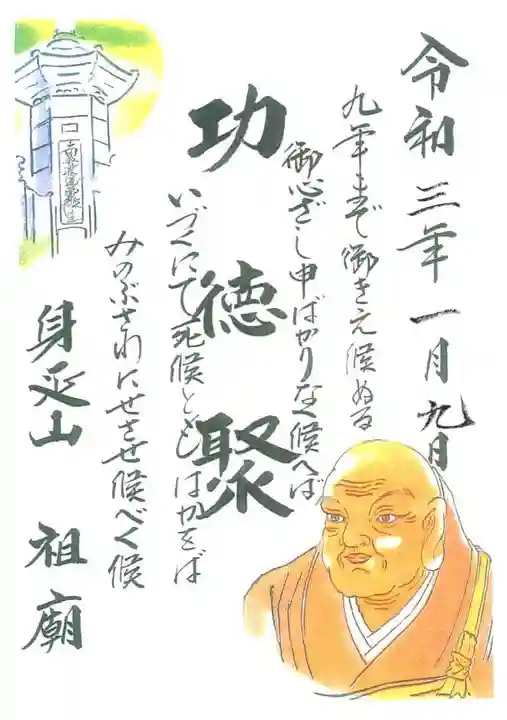 令和三年一月九日
九年まで御きえ候ぬる
御心ざし申ばかりなく候へば
功徳聚
いづくにて死候とも はかをば
みのぶさわにせさせ候べく候
身延山 祖廟